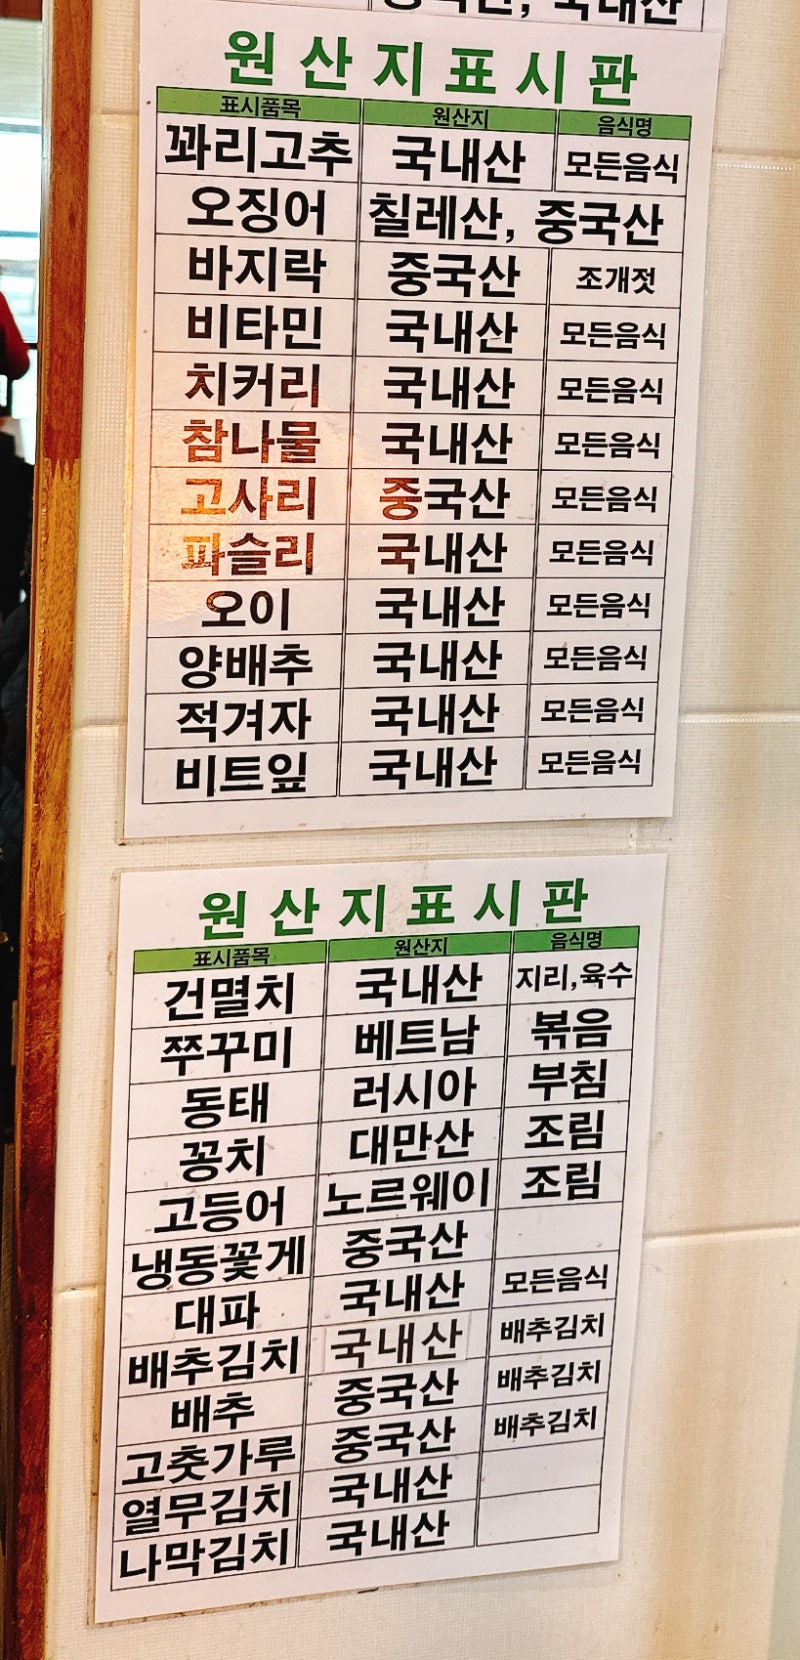 원산지표시판
표시품목 원산지 음식명
꽈리고추 국내산 모든음식
오징어 칠레산, 중국산
바지락 중국산 조개젓
비타민 국내산 모든음식
치커리 국내산 모든음식
참나물 국내산 모든음식
고사리 중국산 모든음식
파슬리 국내산 모든음식
오이 국내산 모든음식
양배추 국내산 모든음식
적겨자 국내산 모든음식
비트잎 국내산 모든음식
원산지표시판
표시품목 원산지 음식명
건멸치 국내산 지리,육수
쭈꾸미 베트남 볶음
동태 러시아 부침
꽁치 대만산 조림
고등어 노르웨이 조림
냉동꽃게 중국산
대파 국내산 모든음식
배추김치 국내산 배추김치
배추 중국산 배추김치
고춧가루 중국산 배추김치
열무김치 국내산
나막김치 국내산